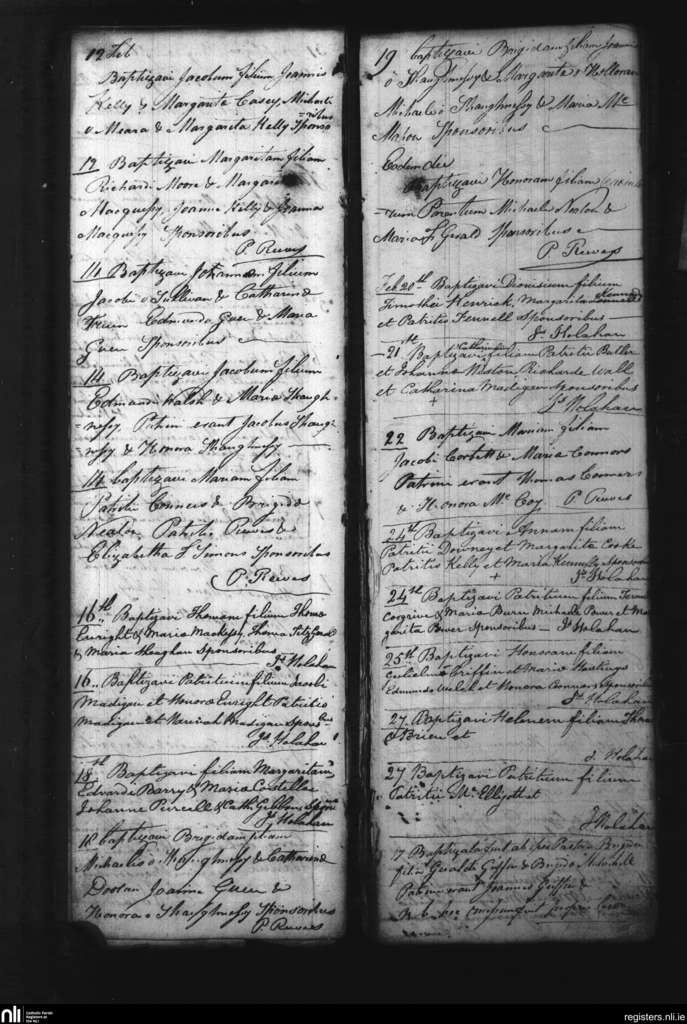 12 Feb
Baptizavi Jacobum filium Joannis
Kelly & Margarita Casey Michael
o Meara & Margarita Kelly Sponso
=ribus
12 Baptizavi Margaritam filiam
Richardi Moore & Margarita
Macquessy Joanne Kelly & Joanna
Macquessy Sponsoribus
P. Reeves
14 Baptizavi Johannam filiam
Jacobi o Sullivan & Catharina
Edmundo Guer & Maria
Guer Sponsoribus
14 Baptizavi Jacobum filium
Edmundi Walsh & Maria Shaugh-
=nessy Patrini erant Jacobus Shaugh
nessy & Honora Shaughnessy
14 baptizavi Mariam filiam
Patritii Connors & Brigida
Nealon Patritio Reeves &
Elizabetha F. Simons Sponsoribus
P. Reeves
16th Baptizavi Thomam filium Thoma
Enright & Maria Mackessy, Thoma FitzGerald
& Maria Sheaghan Sponsoribus
Js Holahan
16 Baptizavi Patritium filium Jacobi
Madigan et Honora Enright Patritio
Madigan et Madigan Sponsbus
Js Holahan
18th Baptizavi filiam Margaritam
Edvardi Barry & Maria Costelloe
Johanne Purcell & Cath Gibbons Spons
Js Holahan
18 baptizavi Brigidam filiam
Michaelis o & Catharina
Doolan Joanne Guer &
Honora o Shaughnessy Sponsoribus
P. Reeves
19 baptizavi Brigidam filiam Joannis
o Shaughnessy & Margarita o Holloran
Michaele o Shaughnessy & Maria Mc
Mahon Sponsoribus
Eodem die
Baptizavi Honoram filiam
Parentum Michaelis Neston &
Maria F. Gerald Sponsoribus
P Reeves
Feb 20th Baptizavi Dionisium filium
Timothei Kenrick, Margarita Kennedy
et Patritio Fennell Sponsoribus
Js Holahan
21st Baptizavi Catharinam filiam Patritii Butler
et Johanna Neston Richardo Wall
et Catharina Madigan Sponsoribus
Js Holahan
22 Baptizavi Mariam filiam
Jacobi Corbett & Maria Connors
Patrini erant Thomas Connors
& Honora Mc Coy P. Reeves
24th Baptizavi Annam filiam
Patritii Downey et Margarita Coske
Patritio Kelly et Maria Kennedy Sponsoribus
Js Holahan
24th Baptizavi Patritium filium
& Maria Burn Michaele Power et Mar
garita Power Sponsoribus — Js Holahan
25th Baptizavi Honoram filiam
Gulielmi Griffin et Maria Hastings
Edmundo Welsh et Honora Connors Sponsoribus
Js Holahan
27 Baptizavi Helenem filiam Thoma
O Brien et
J Holahan
27 Baptizavi Patritium filium
Patritii Mc Elligott et
J Holahan
17 Baptizata fuit
filia Geraldi Griffin & Brigida Mitchell
Patrini erant Joannes Griffin &
nli
Catholic Parish
Registers at
the NLI
registers.nli.ie